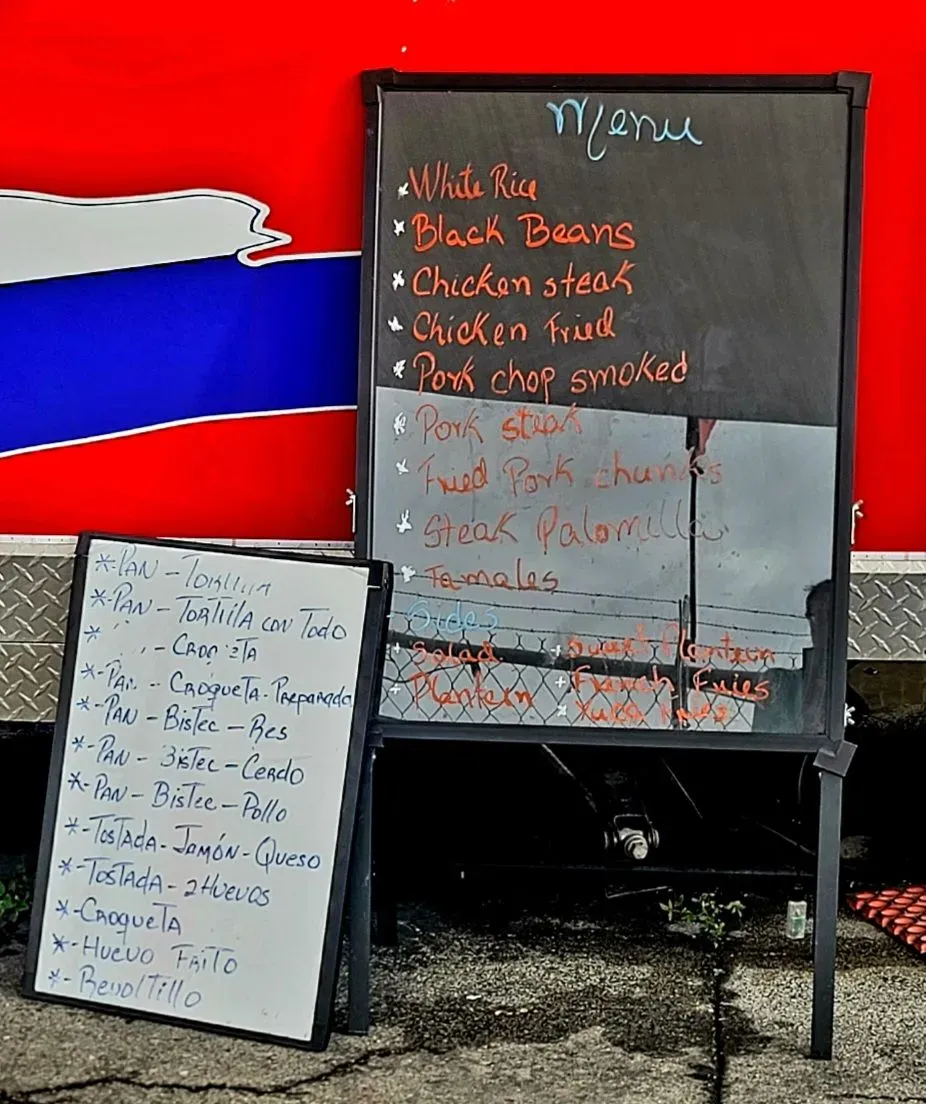 Menu
White Rice
Black Beans
Chicken steak
Chicken Fried
Pork chop smoked
Pork steak
Fried Pork chunks
Steak Palomilla
Tamales
Sides
Salad + Sweet Plantein
+ Plantein + French Fries
* Yuca Fries
*-PAN - TORTILLA
*-PAN - TORTILLA CON TODO
* - CROQUETA
*-PAN - CROQUETA-PREPARADA
*-PAN - BISTEC - RES
*-PAN - BISTEC - CERDO
*-PAN - BISTEC - POLLO
*-TOSTADA-JAMÓN-QUESO
*-TOSTADA - 2 HUEVOS
*-CROQUETA
*-HUEVO FRITO
*-REVOLTILLO